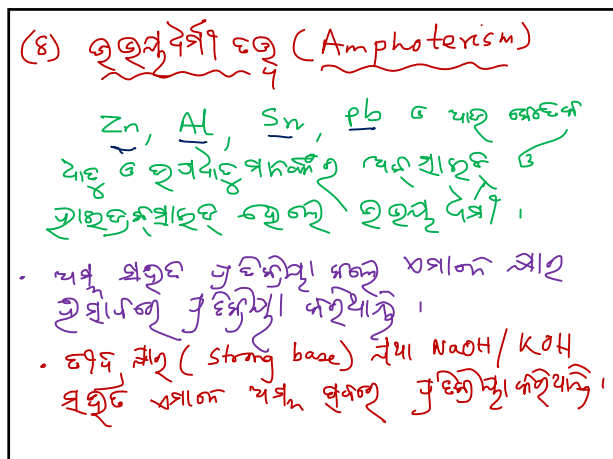 (୫) ଉଭୟଧର୍ମୀ ତତ୍ତ୍ୱ (Amphoterism)
Zn, Al, Sn, Pb ଓ ଆଉ କେତେକ
ଧାତୁ ଓ ଉପଧାତୁମାନଙ୍କର ଅକ୍ସାଇଡ୍ ଓ
ହାଇଡ୍ରକ୍ସାଇଡ୍ ହେଲେ ଉଭୟଧର୍ମୀ ।
• ଅମ୍ଳ ସହିତ ପ୍ରତିକ୍ରିୟା କଲେ ଏମାନେ କ୍ଷାର
ଭାବରେ ପ୍ରତିକ୍ରିୟା କରିଥାନ୍ତି ।
• ତୀବ୍ର କ୍ଷାର (strong base) ଯଥା NaOH/KOH
ସହିତ ଏମାନେ ଅମ୍ଳ ପ୍ରତିକ୍ରିୟା କରିଥାନ୍ତି ।